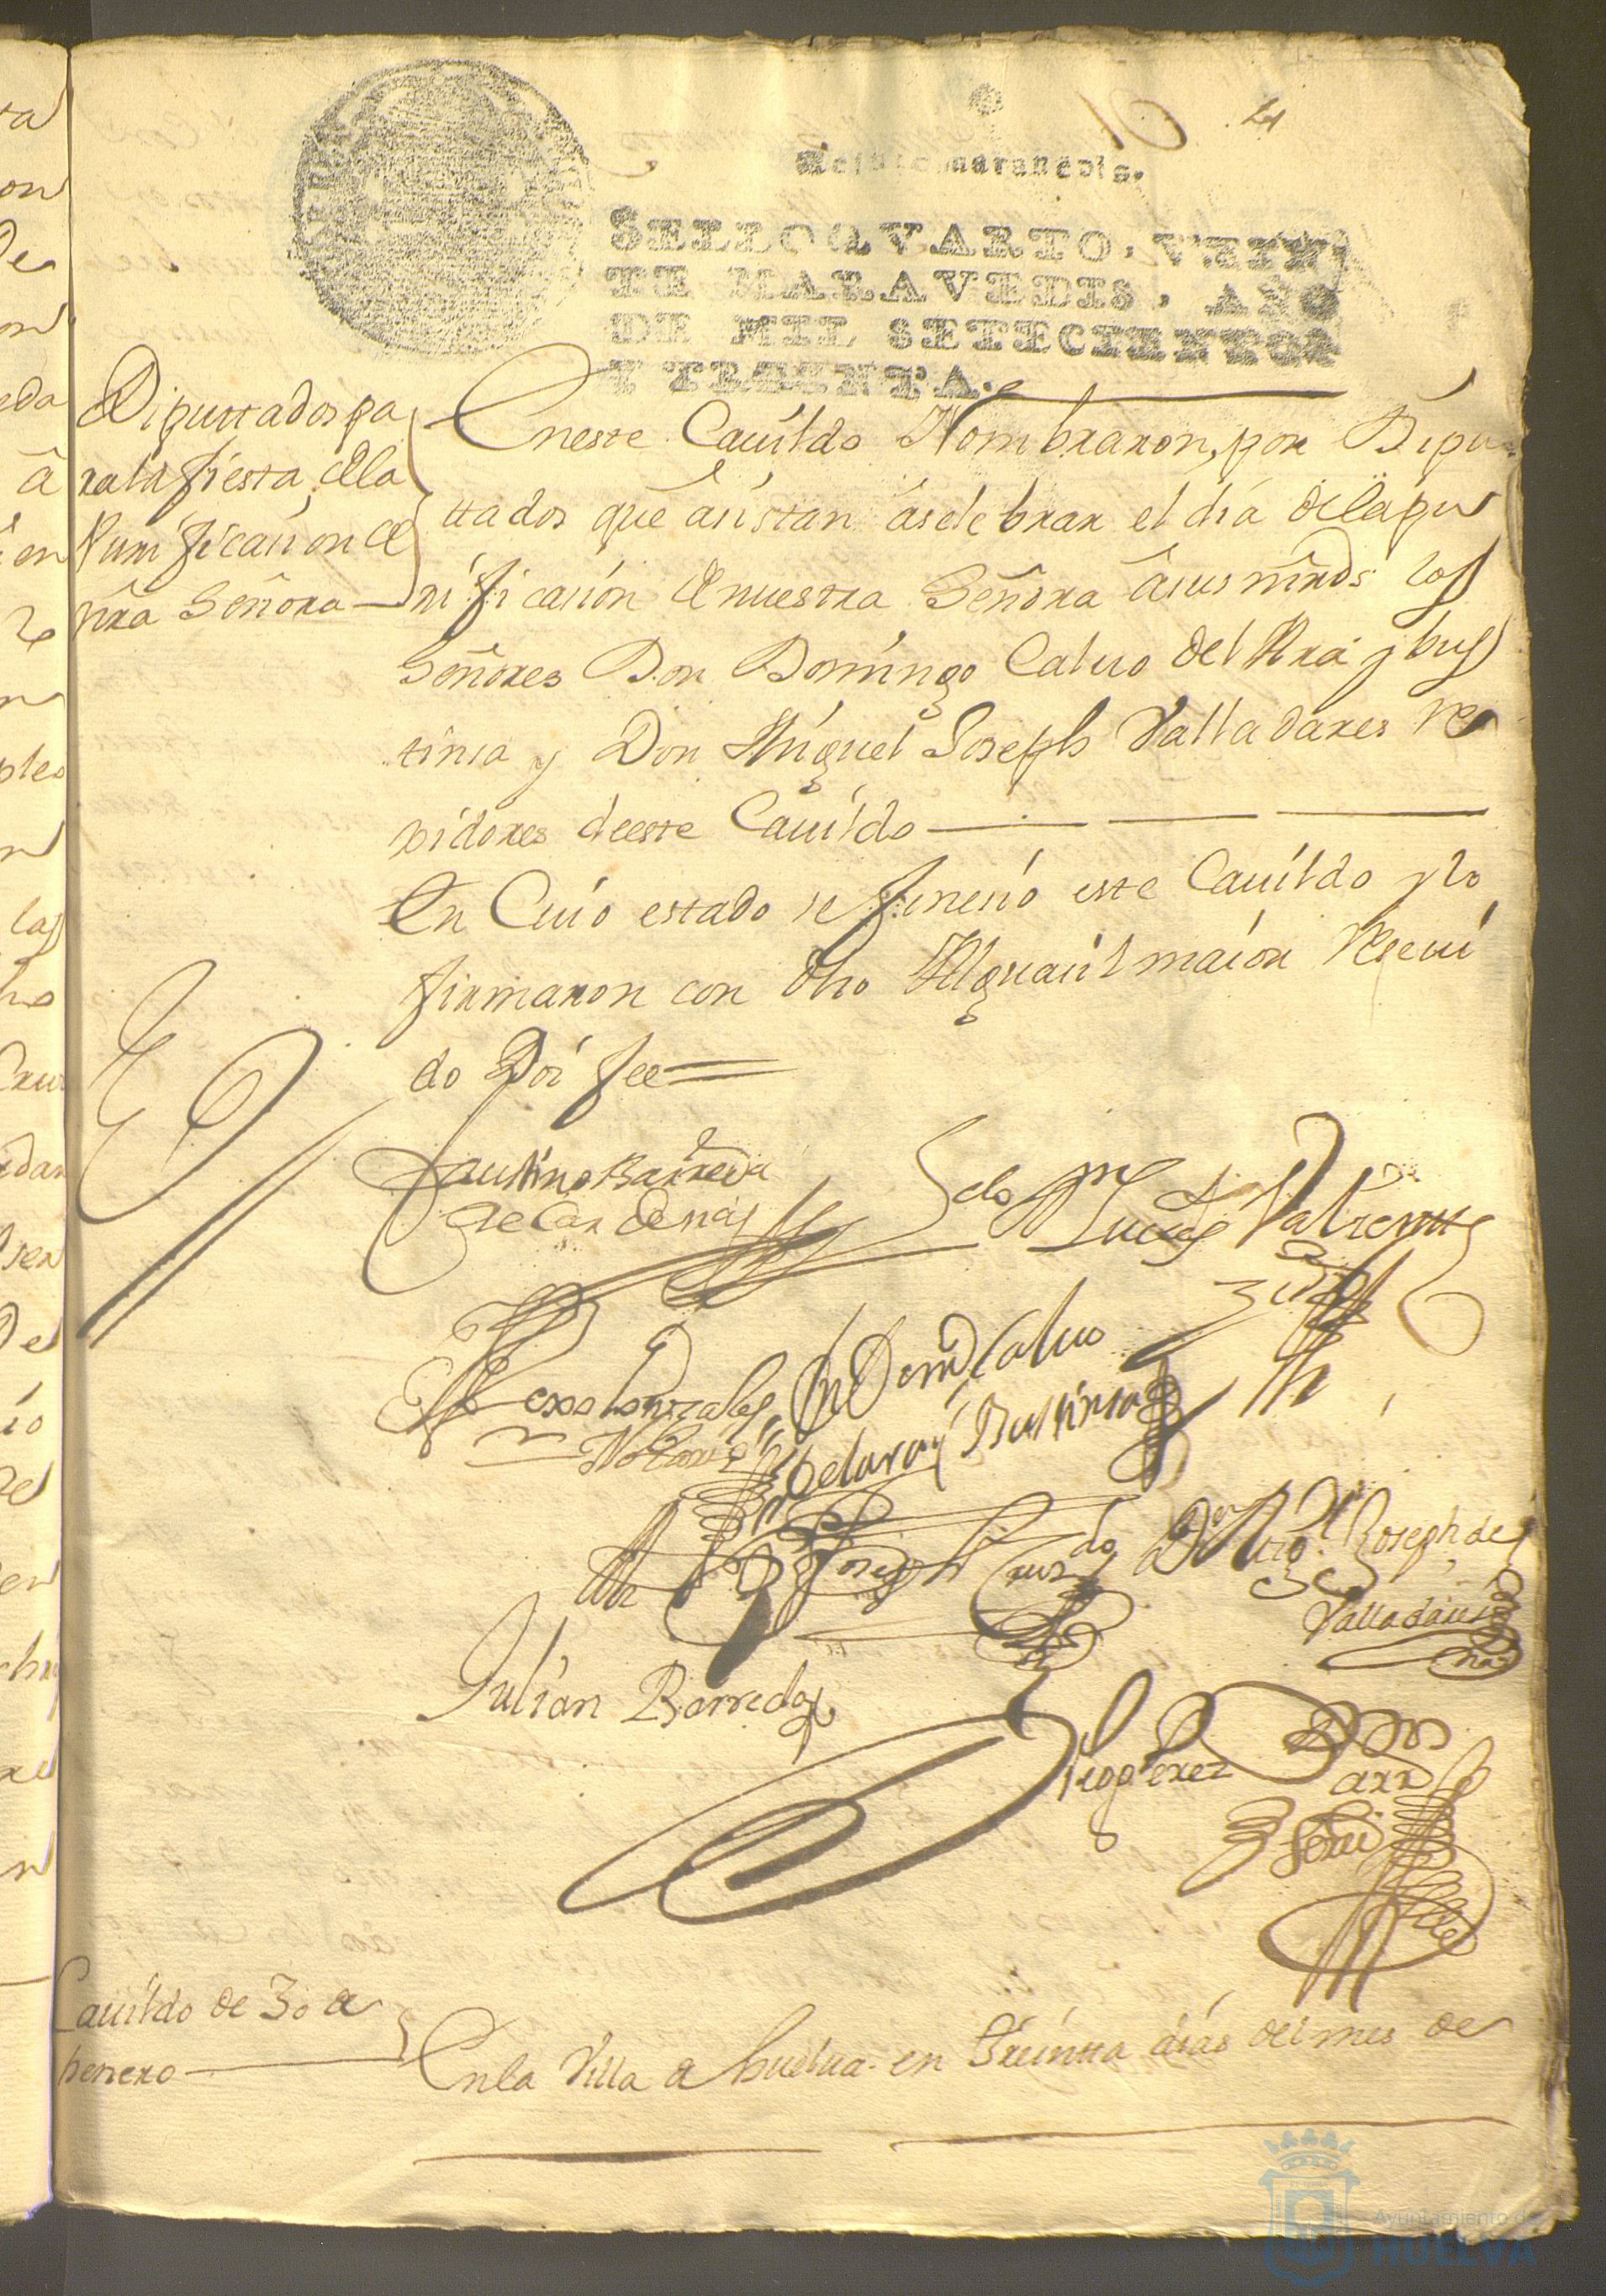 maravedis.
SELLO QVARTO, VEIN
TE MARAVEDIS, AÑO
DE MIL SETECIENTOS
Y TREINTA.
Diputtados pa
ra la fiesta de la
Purificasion de
nra Señora
Eneste Cauildo Nombraron, por Dipu
ttados que asistan aselebrar el dia de la pu
rificasion de nuestra Señora a sus mrds los
Señores Don Domingo Caluo del Rra y bus
tinsa y Don Miguel Joseph Valladares Re
xidores deeste Cauildo
En Cuio estado se fenesio este Cauildo y lo
firmaron con dho Alguasil maior Reseui
do Doi fee
Faustino Barreda
de Cardenas
Lucas Valiente
Alexo Gonzales
Dn Domo Caluo
Notario
Bustinsa
Joseph
Dn Migl Joseph de
Valladares
Julian Barreda
Diego Perez
Cauildo de 30 de
henero
Enla Villa de huelua en treintta dias del mes de
Ayuntamiento de
HUELVA